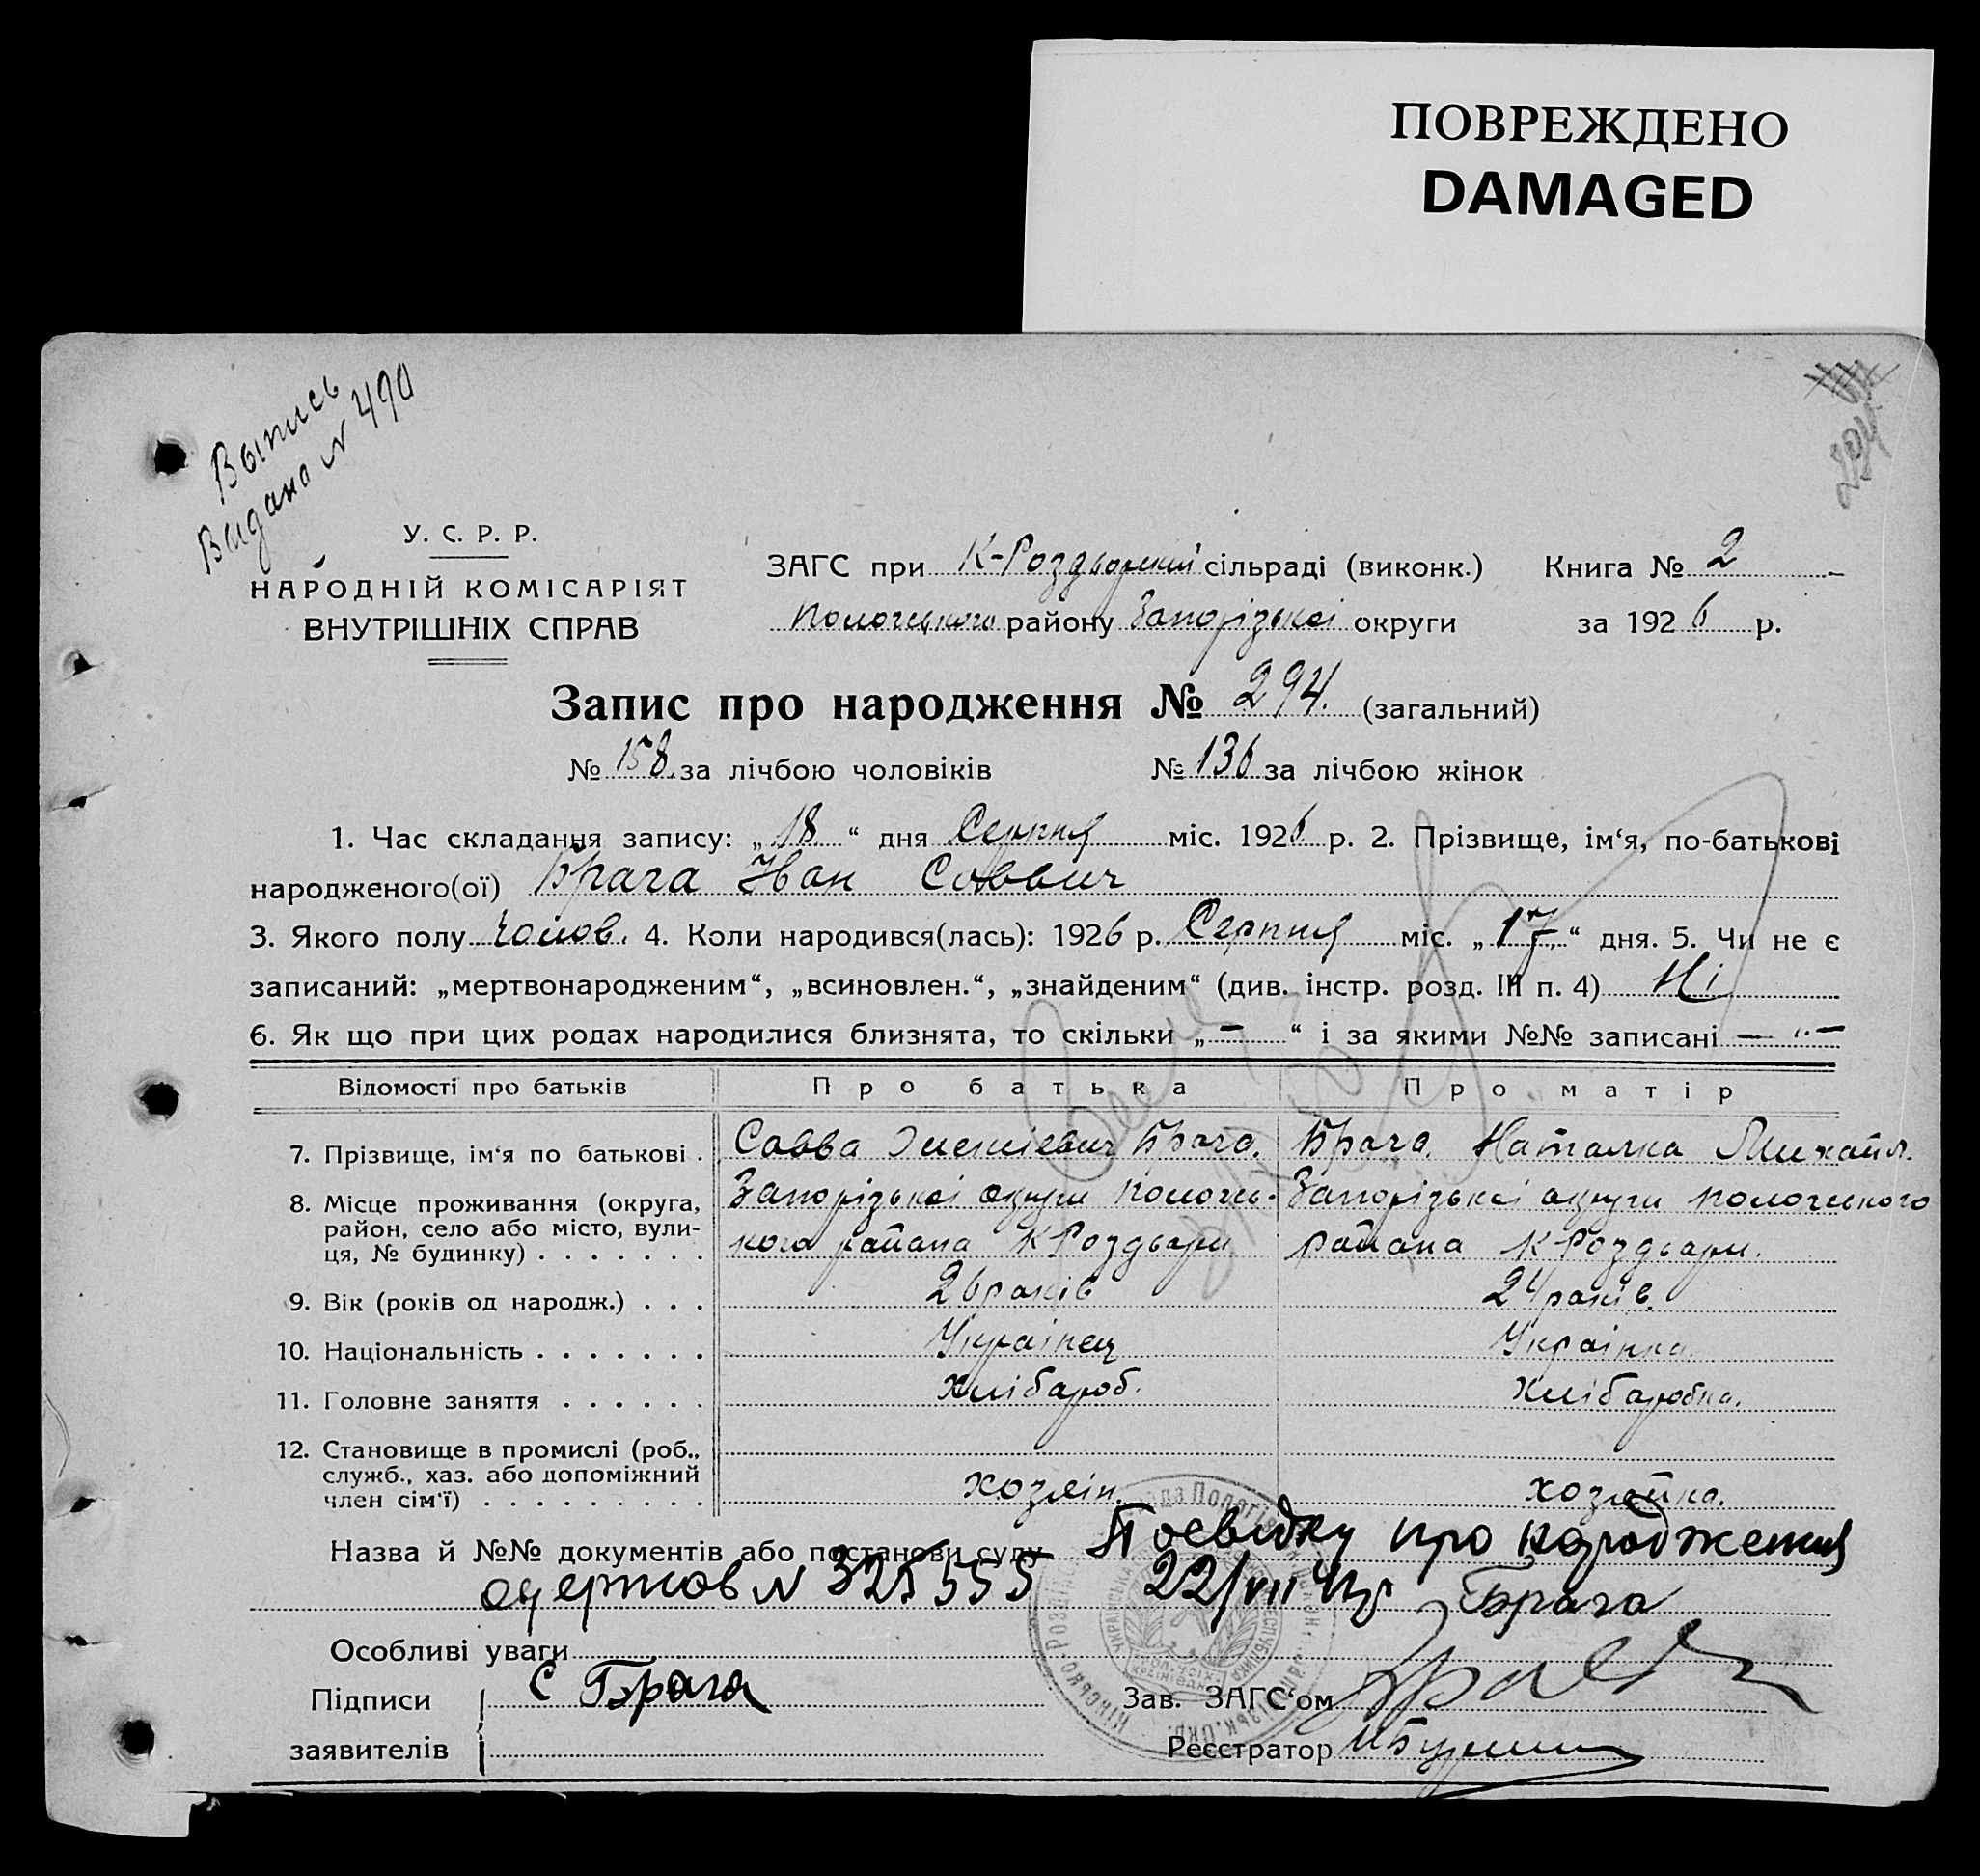 ПОВРЕЖДЕНО
DAMAGED
Выпись
Видано N 490
294
У. С. Р. Р.
НАРОДНІЙ КОМІСАРІЯТ
ВНУТРІШНІХ СПРАВ
ЗАГС при К-Роздорский сільраді (виконк.) Книга № 2
Пологського району Запорізької округи за 1926 р.
Запис про народження № 294. (загальний)
№ 158 за лічбою чоловіків № 136 за лічбою жінок
1. Час складання запису: „18“ дня Серпня міс. 1926 р. 2. Прізвище, ім‘я, по-батькові
народженого(ої) Брага Иван Саввич
3. Якого полу чолов. 4. Коли народився(лась): 1926 р. Серпня міс. „17“ дня. 5. Чи не є
записаний: „мертвонародженим“, „всиновлен.“, „знайденим“ (див. інстр. розд. III п. 4) Ні
6. Як що при цих родах народилися близнята, то скільки „—“ і за якими №№ записані — „ —
Відомості про батьків Про батька Про матір
7. Прізвище, ім‘я по батькові . Савва Брага. Брага Наталка Михайл.
8. Місце проживання (округа, Запорізькоі округи Пологсь- Запорізькоі округи Пологського
район, село або місто, вули-
ця, № будинку) . . . . . . . кого района К Роздори района К Роздори.
9. Вік (років од народж.) . . . 26 років 24 років.
10. Національність . . . . . . . Українец Українка.
11. Головне заняття . . . . . . Хлібороб. Хліборобка.
12. Становище в промислі (роб.,
служб., хаз. або допоміжний
член сім‘ї) . . . . . . . . . хозяін. хозяйка.
Назва й №№ документів або постанови суду Посвідку про народження
одержав N 325555 22/VII Брага
Особливі уваги
Підписи С Брага Зав. ЗАГС‘ом
заявителів Реєстратор